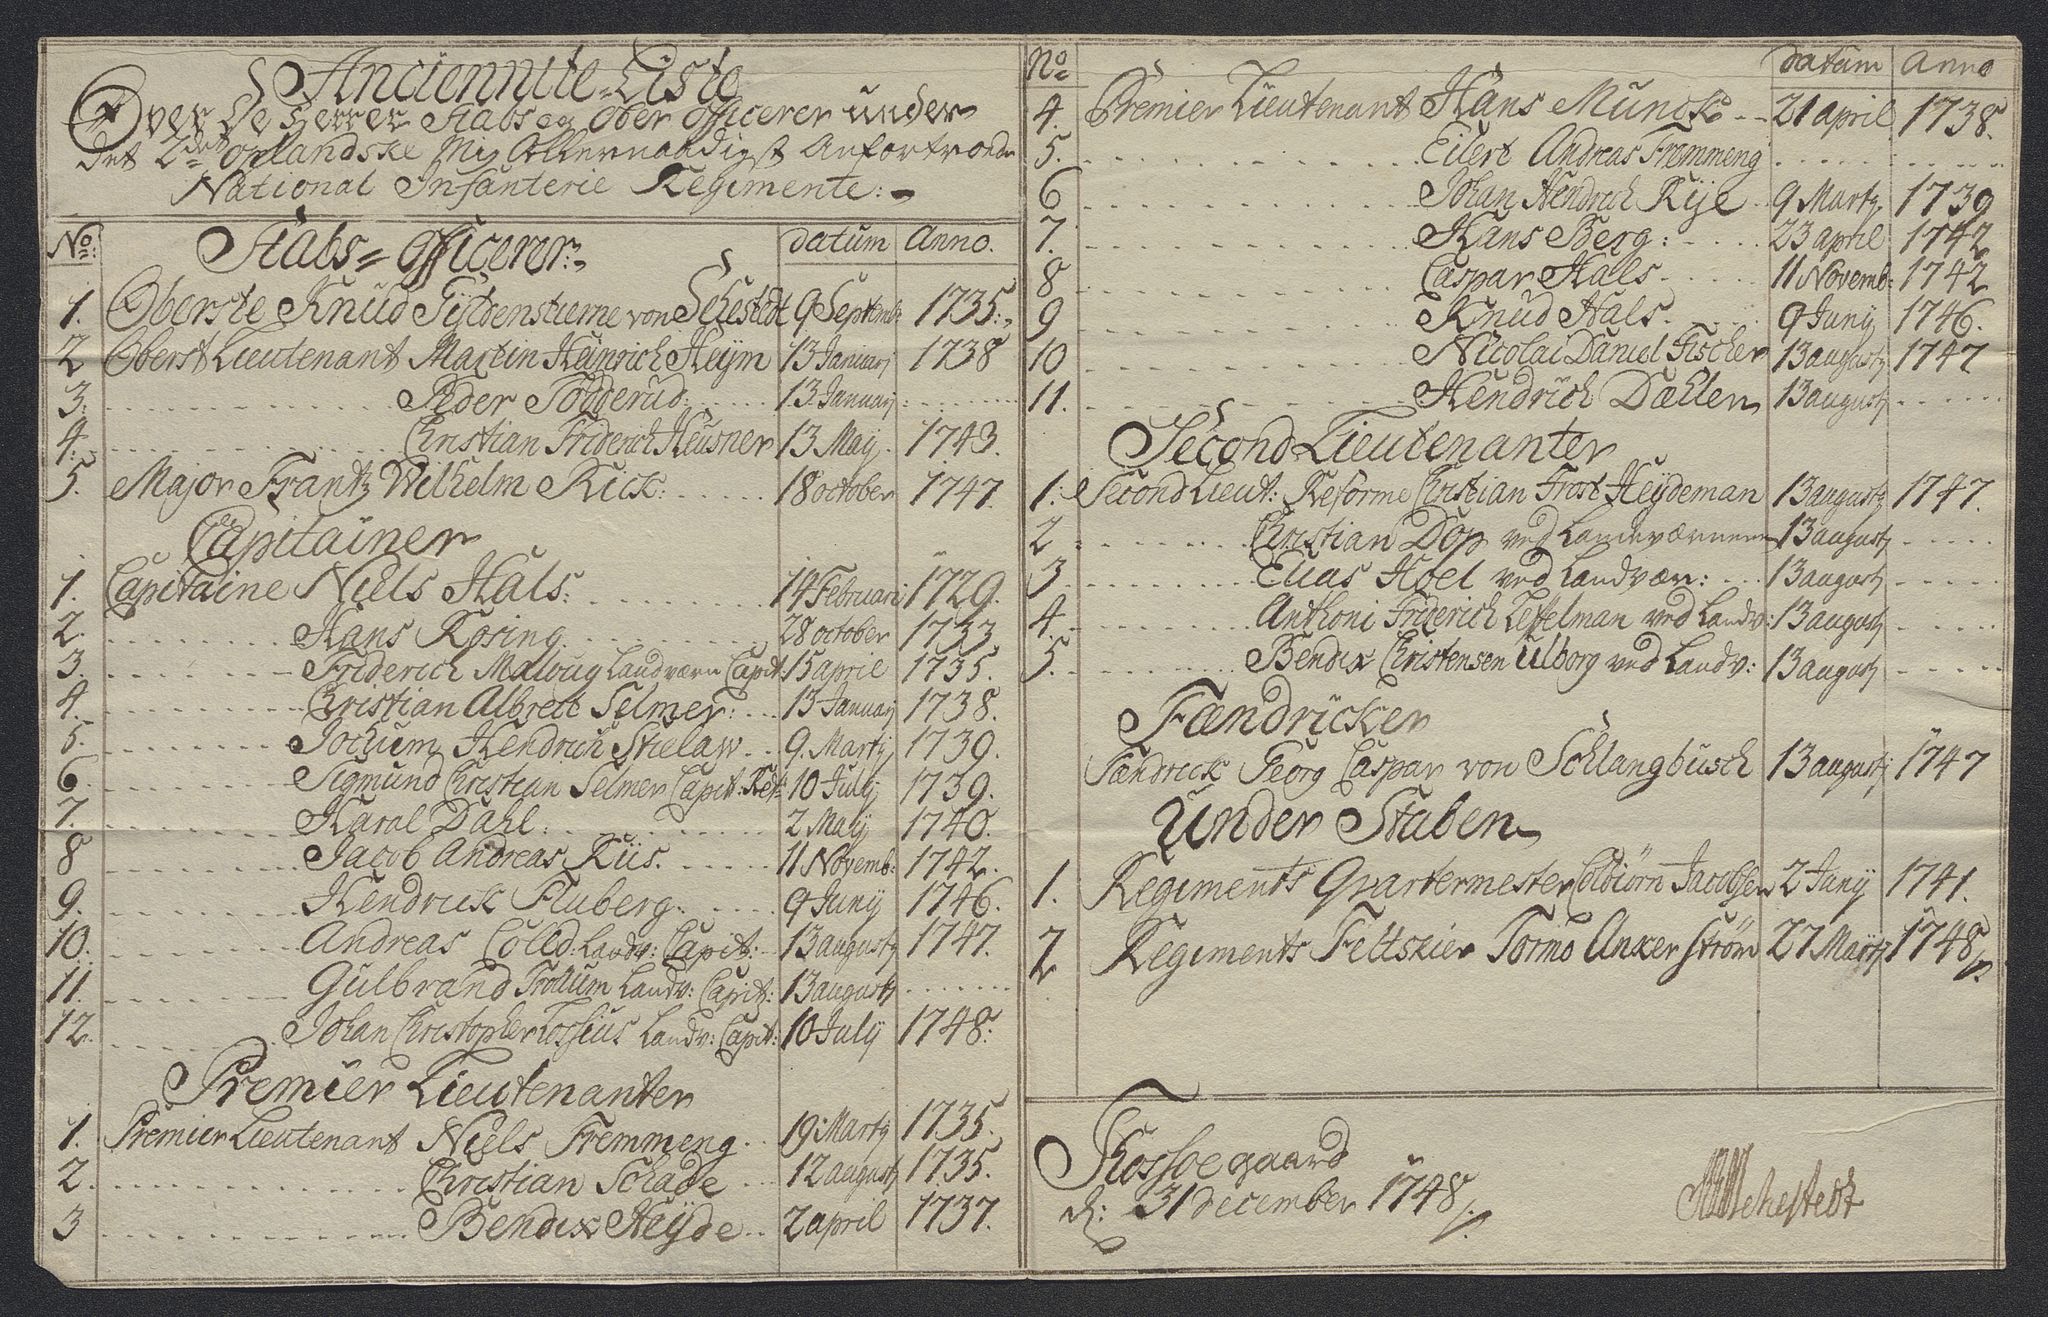 Anciennite Liste
Over De Herrer Stabs og Ober Officerer under
det 2det oplandske Mig Allernaadigst Anfortroede
National Infanterie Regimente:
No: Stabs=Officerer: datum Anno.
1. Oberste Knud Gÿldenstierne von Sehestedt 9 Septemb: 1735.
2 Oberst Lieutenant Martin Heinrich Heÿm 13 Januarij 1738
3. Peder Todderud: 13 January
4. Christian Friderich Heusner 13 Maij. 1743.
5. Major Frantz Wilhelm Rick: 18 october 1747.
Capitainer
1. Capitaine Niels Hals: 14 Februari 1729.
2. Hans Rosing 28 october 1733.
3. Friderich Maloug Landværn Capit: 15 april 1735.
4. Christian Albrett Selmer: 13 January 1738.
5. Jochum Hendrich Stielaw 9. Martij 1739.
6. Sigmund Christian Selmer Capit: Ref: 10 Julij 1739.
7. Karol Dahl: 2 Maij 1740.
8 Jacob Andreas Riis. 11 Novemb: 1742.
9. Hendrick Fluberg. 9 Junij 1746.
10. Andreas Colld: Landv: Capit: 13 augustij 1747.
11. Gulbrand Trollum Landv: Capit: 13 augustij
12. Johan Christopher Lossius Landv: Capit: 10 Julij 1748.
Premier Lieutenanter
1. Premier Lieutenant Niels Fremmeng. 19 Martij 1735.
2. Christian Schade 12 augustij 1735.
3 Bendix Heÿde 2 april 1737.
No datum Anno
4. Premier Lieutenant Hans Munck 21 april 1738.
5. Eilert Andreas Fremmeng
6 Johan Hendrich Rÿe 9 Martij 1739
7. Hans Berg: 23 april 1742
8 Caspar Hals. 11 Novemb: 1742
9 Knud Hals. 9 Junij 1746.
10 Nicolai Daniel Fischer 13 augustij 1747
11. Hendrich Dæhlen 13 augustij
Second Lieutenanter
1. Second Lieut: Reforme Christian Frost Heÿdeman 13 augustij 1747.
2 Christian Dop ved Landeværnene 13 augustij
3 Elias Hoel ved Landvær: 13 augustij
4. Anthoni Friderich Teffelman ved Landv: 13 augustij
5. Bendix Christensen Ulborg ved Landv: 13 augustij
Fændricker
Fændrick Georg Caspar von Schlangbusch 13 augustij 1747
Under Staben
1. Regiments Qvartermester Colbiörn Jacobsen 2 Junij 1741.
2 Regiments Feltskier Tormo Anker Ström 27 Martij 1748.
Thosseegaard
d: 31 december 1748.
Sehestedt